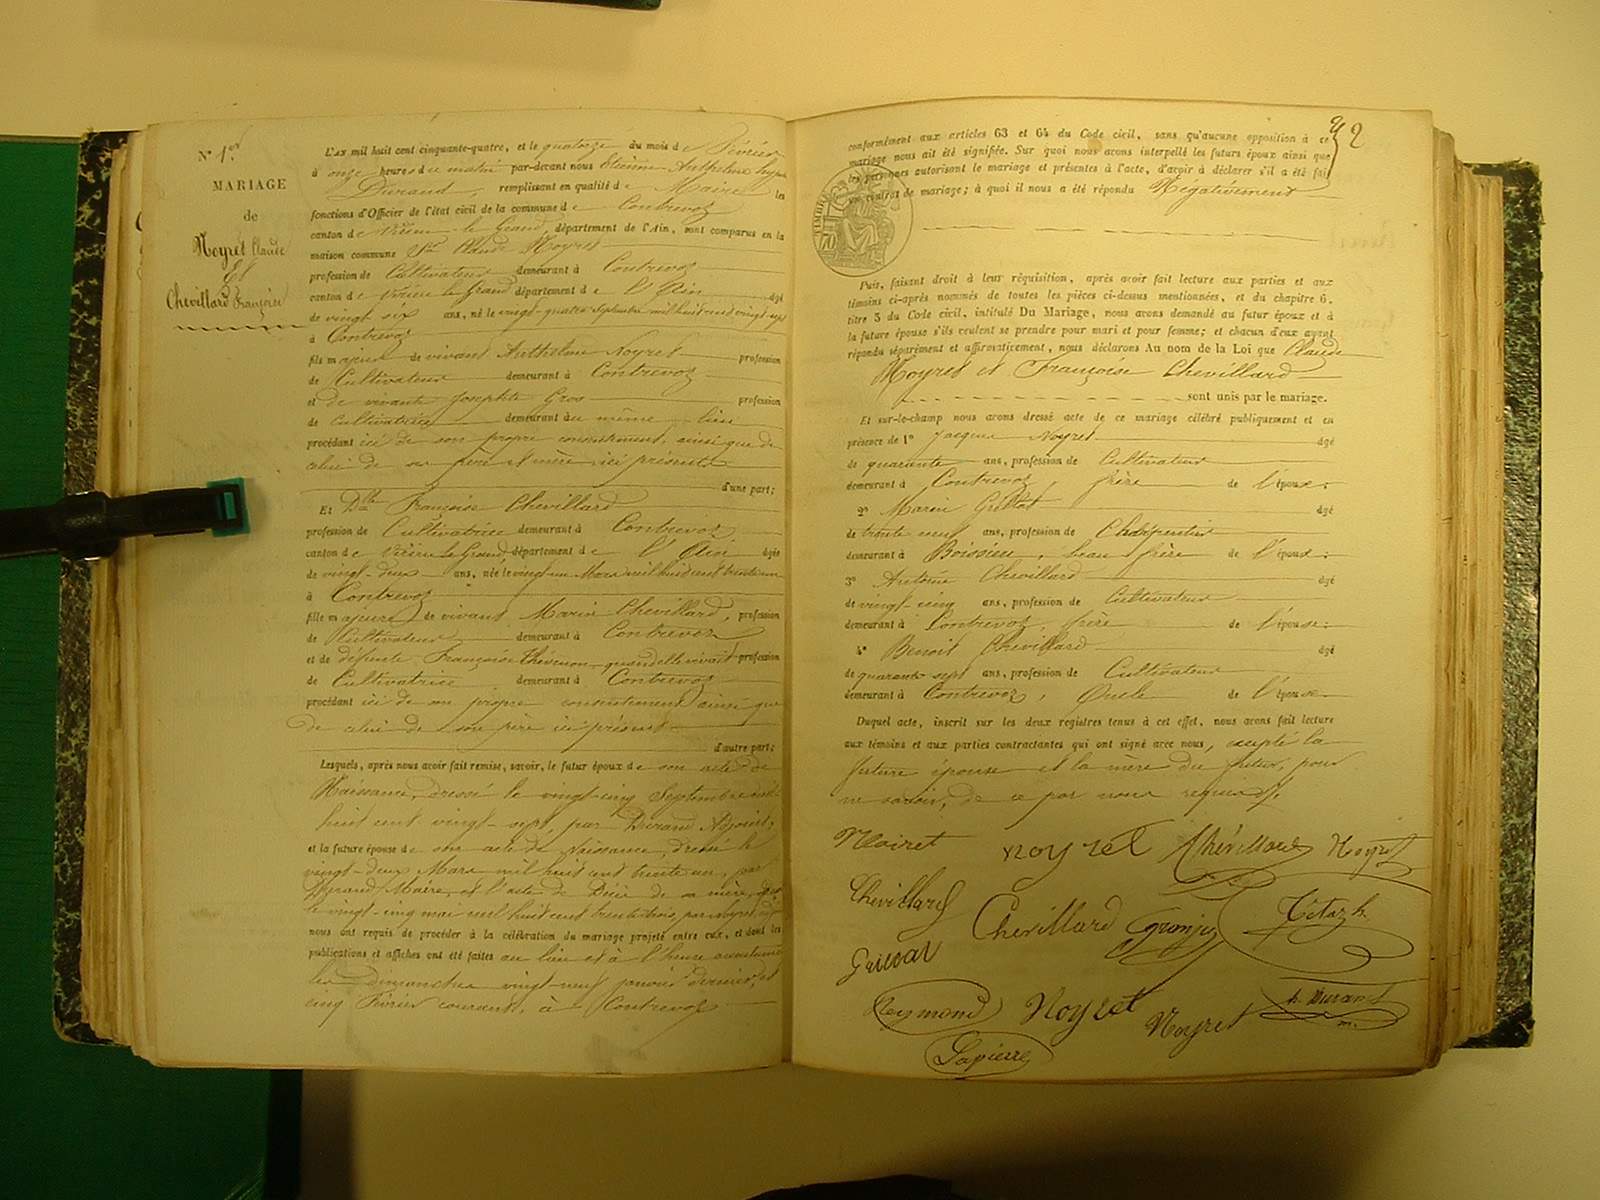 N° 1er
MARIAGE
de
Noyret Claude
Et
Chevillard Françoise
L'AN mil huit cent cinquante-quatre, et le quatorze du mois de Février
à onze heures du matin par-devant nous Etienne Anthelme
Durand, remplissant en qualité de Maire les
fonctions d'Officier de l'état civil de la commune de Contrevoz
canton de Virieu-le-Grand, département de l'Ain, sont comparus en la
maison commune Sr Claude Noyret
profession de Cultivateur demeurant à Contrevoz
canton de Virieu le Grand département de l'Ain âgé
de vingt six ans, né le vingt-quatre Septembre mil huit cent vingt-sept
à Contrevoz
fils majeur de vivant Anthelme Noyret profession
de Cultivateur demeurant à Contrevoz
et de vivante Josephte Gros profession
de Cultivatrice demeurant au même lieu
procédant ici de son propre consentement, ainsi que de
celui de ses père et mère ici présents
d'une part;
Et Dlle Françoise Chevillard
profession de Cultivatrice demeurant à Contrevoz
canton de Virieu le Grand, département de l'Ain âgée
de vingt-deux ans, née le vingt un Mars mil huit cent trente un
à Contrevoz
fille majeure de vivant Marin Chevillard, profession
de Cultivateur demeurant à Contrevoz
et de défunte Françoise Thévenon, quand elle vivait profession
de Cultivatrice demeurant à Contrevoz
procédant ici de son propre consentement ainsi que
de celui de son père ici présent
d'autre part;
Lesquels, après nous avoir fait remise, savoir, le futur époux de son acte de
Naissance, dressé le vingt-cinq Septembre mil
huit cent vingt-sept, par Durand Adjoint;
et la future épouse de son acte de Naissance, dressé le
vingt-deux Mars mil huit cent trente un, par
Durand Maire, et l'acte de Décès de sa mère,
le vingt-cinq mai mil huit cent trente trois, par Noyret,
nous ont requis de procéder à la célébration du mariage projeté entre eux, et dont les
publications et affiches ont été faites au lieu et à l'heure accoutumés
les dimanches vingt-neuf janvier dernier, et
cinq Février courant, à Contrevoz
2
conformément aux articles 63 et 64 du Code civil, sans qu'aucune opposition à ce
mariage nous ait été signifiée. Sur quoi nous avons interpellé les futurs époux ainsi que
les personnes autorisant le mariage et présentes à l'acte, d'avoir à déclarer s'il a été fait
un contrat de mariage; à quoi il nous a été répondu Négativement
TIMBRE
70
Puis, faisant droit à leur réquisition, après avoir fait lecture aux parties et aux
témoins ci-après nommés de toutes les pièces ci-dessus mentionnées, et du chapitre 6,
titre 5 du Code civil, intitulé Du Mariage, nous avons demandé au futur époux et à
la future épouse s'ils veulent se prendre pour mari et pour femme; et chacun d'eux ayant
répondu séparément et affirmativement, nous déclarons Au nom de la Loi que Claude
Noyret et Françoise Chevillard
sont unis par le mariage.
Et sur-le-champ nous avons dressé acte de ce mariage célébré publiquement et en
présence de 1° Jacques Noyret âgé
de quarante ans, profession de Cultivateur
demeurant à Contrevoz, frère de l'époux;
2° Marin Grillot âgé
de trente neuf ans, profession de Charpentier
demeurant à Boissieu, beau frère de l'époux;
3° Antoine Chevillard âgé
de vingt-cinq ans, profession de Cultivateur
demeurant à Contrevoz, frère de l'épouse;
4° Benoit Chevillard âgé
de quarante sept ans, profession de Cultivateur
demeurant à Contrevoz, Oncle de l'épouse
Duquel acte, inscrit sur les deux registres tenus à cet effet, nous avons fait lecture
aux témoins et aux parties contractantes qui ont signé avec nous, excepté la
future épouse et la mère du futur, pour
ne savoir, de ce par nous requises.
Noiret noyret Chévillard Noyret
Chevillard Chevillard Gronjeu
Reymond Noyret Noyret Durand
m.
Lapierre